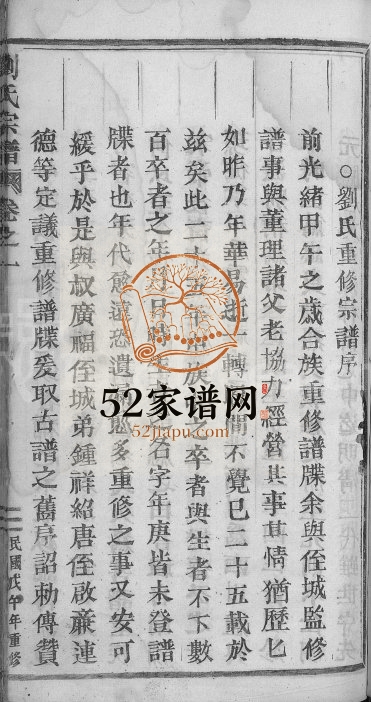 ○劉氏重修宗譜序
前光緒甲午之歲合族重修譜牒余與侄城監修
譜事與董理諸父老協力經營其事其情猶歷匕
如昨乃年華易逝一轉間不覺已二十五載於
茲矣此二十五年族之卒者與生者不下數
百卒者之年月日時生名字年庚皆未登譜
牒者也年代愈遠恐遺愈多重修之事又安可
緩乎於是與叔廣福侄城弟鍾祥紹唐侄啟連
德等定議重修譜牒爰取古譜之舊序詔勅傳贊
劉氏宗譜 卷之一
民國戊午年重修
52家谱网
52jiapu.com